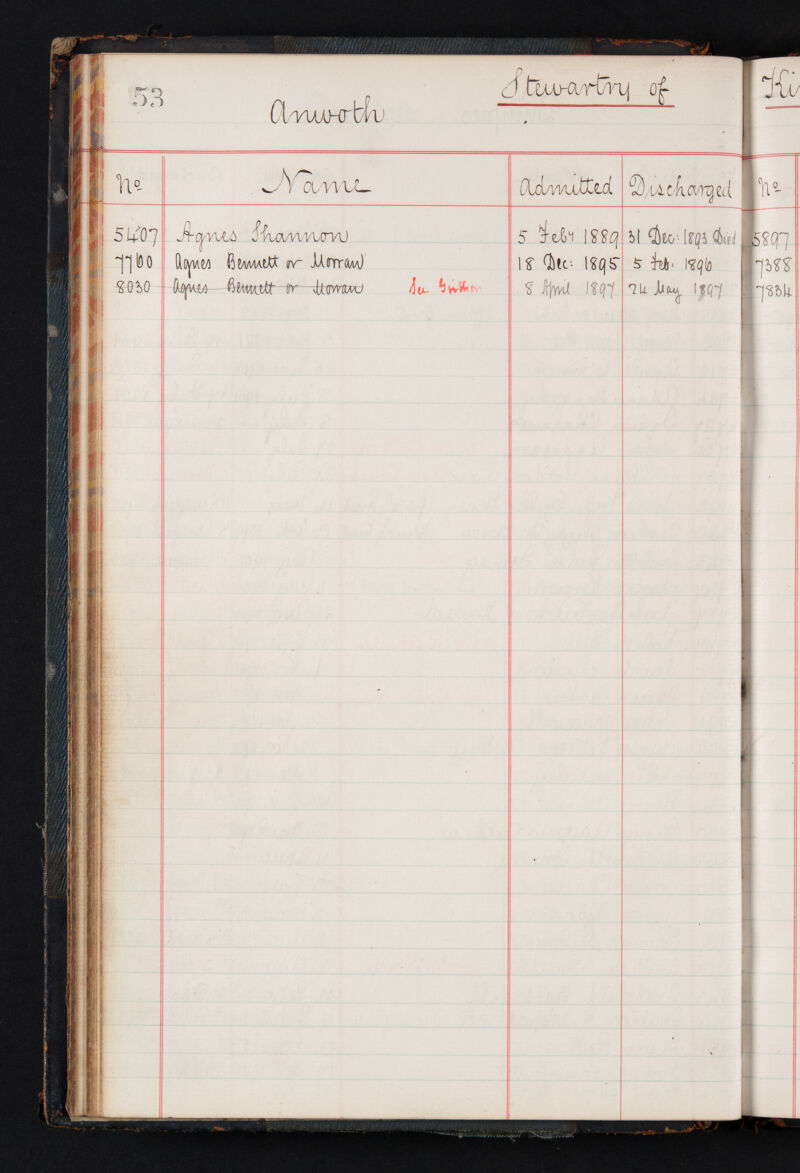 53
Anwoth
Stewartry of
No Name Admitted Discharged No
5407 Agnes Shannon 5 Feby 1889 31 Dec: 1893 Died 5897
7700 Agnes Bennett or Morran 18 Dec: 1895 5 Feb. 1896 7388
8030 Agnes Bennett or Morran See Girthon 8 April 1897 24 May 1897 7834